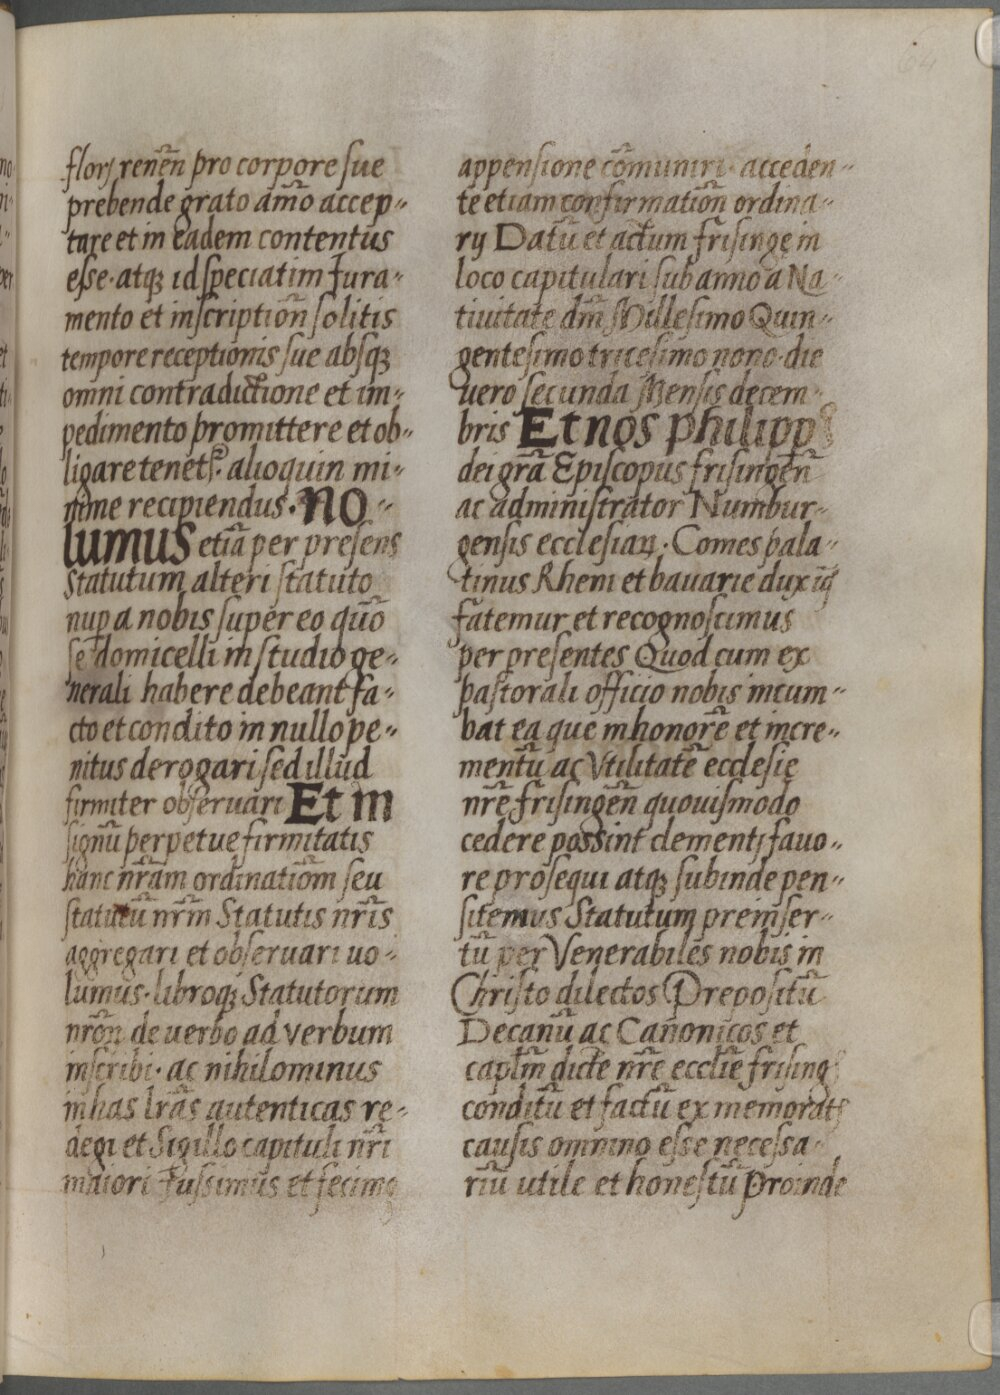 florꝭ renēn pro corpore sue
prebende grato āmo accep-
tare et in eadem contentus
esse·atqꝫ id speciatim Jura-
mento et inscriptiōn solitis
tempore receptionis sue absqꝫ
omni contradictione et im-
pedimento promittere et ob-
ligare tenet᷑ alioquin mi-
nime recipiendus·no-
lumus etiā per presens
Statutum alteri statuto
nuꝑ a nobis super eo quō
se domicelli in studio ge-
nerali habere debeant fa-
cto et condito in nullo pe-
nitus derogari sed illud
firmiter observari Et in
signū perpetue firmitatis
hanc nr̄am ordinatiōm seu
statutū nr̄m Statutis nr̄is
aggregari et observari uo-
lumus·libroqꝫ Statutorum
nrōn de uerbo ad verbum
inscribi·ac nihilominus
in has lr̄as autenticas re-
degi et Sigillo capituli nr̄i
maiori Jussimus et fecimꝰ
appensione cōmuniri·acceden-
te etiam confirmatiōn ordina-
rij Datū et actum frisinge in
loco capitulari sub anno a Na-
tiuitate dn̄i Millesimo Quin-
gentesimo tricesimo nono·die
uero secunda Mensis decem-
bris Et nos philippꝰ
dei grā Episcopus frisingēn
ac administrator Numbur-
gensis ecclesiaꝝ·Comes pala-
tinus Rheni et bauarie dux ꝛc
fatemur et recognoscimus
per presentes Quod cum ex
pastorali officio nobis incum-
bat ea que in honorē et incre-
mentū ac Vtilitatē ecclesie
nr̄e frisingēn quouismodo
cedere possint clementj fauo-
re prosequi atqꝫ subinde pen-
sitemus Statutum preinser-
tū per Venerabiles nobis in
Christo dilectos Prepositū
Decanū ac Canonicos et
caplm̄ dicte nr̄e ecclīe frising
conditū et factū ex memoratꝭ
causis omnino esse necessa-
riū utile et honestū Proinde
64